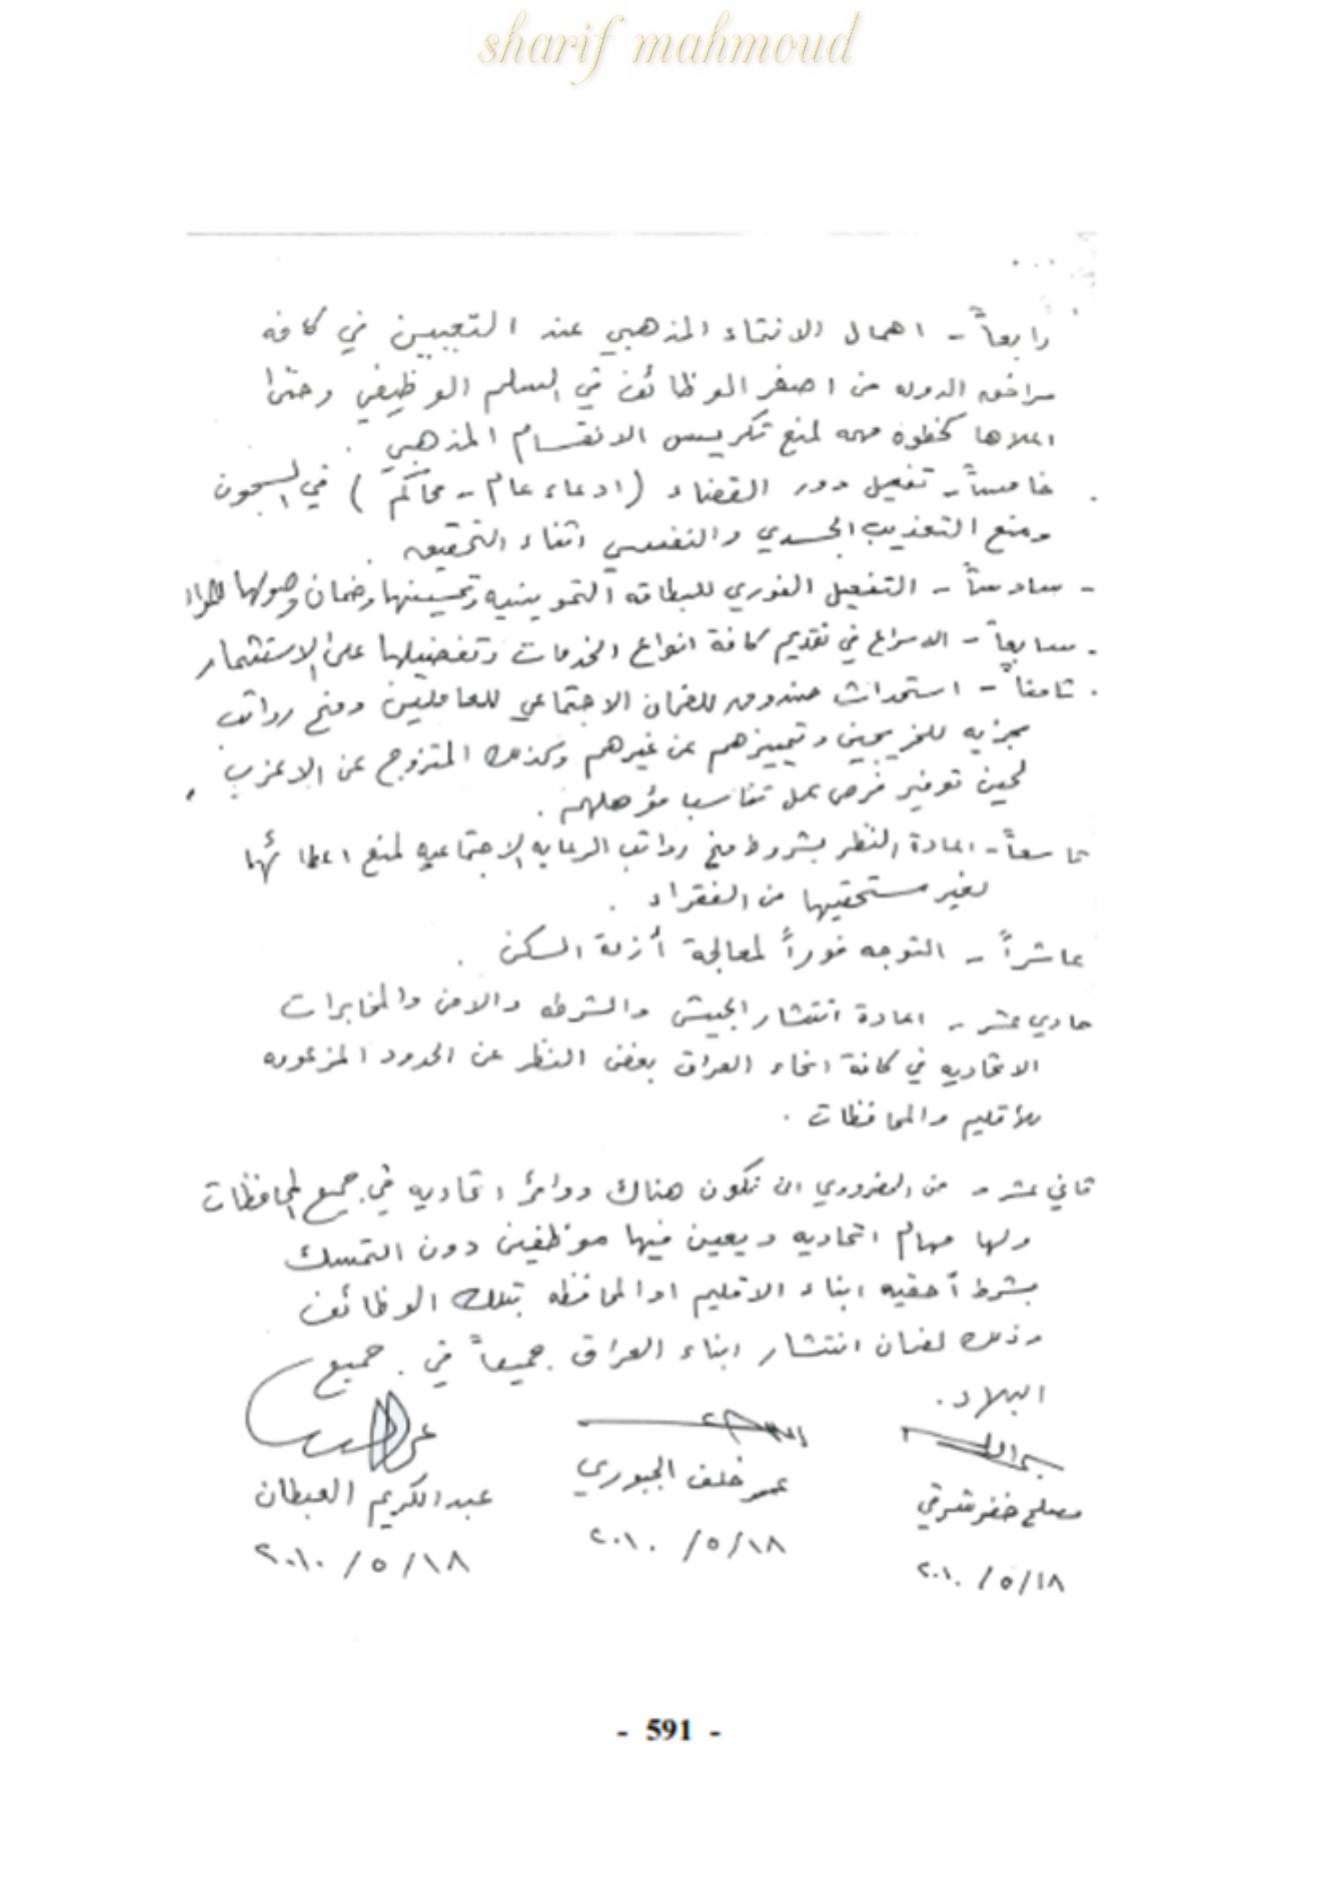 sharif mahmoud
رابعاً - اهمال الانتماء المذهبي عند التعيين في كافه
مرافق الدوله من اصغر الوظائف في السلم الوظيفي وحتى
اعلاها كخطوه مهمه لمنع تكريس الانقسام المذهبي .
خامساً - تفعيل دور القضاء (ادعاء عام - محاكم) في السجون
ومنع التعذيب الجسدي والنفسي اثناء التحقيق .
- سادساً - التفعيل الفوري للبطاقه التموينيه وتحسينها وضمان وصولها
- سابعاً - الاسراع في تقديم كافة انواع الخدمات وتفضيلها على الاستثمار
. ثامناً - استحداث صندوق للضمان الاجتماعي للعاملين ومنح رواتب
مجزيه للخريجين وتمييزهم عن غيرهم وكذلك المتزوج عن الاعزب
لحين توفير فرص عمل تناسب مؤهلهم .
تاسعاً - اعادة النظر بشروط منح رواتب الرعايه الاجتماعيه لمنع اعطائها
لغير مستحقيها من الفقراء .
عاشراً - التوجه فوراً لمعالجة أزمة السكن .
حادي عشر - اعادة انتشار الجيش والشرطه والامن والمخابرات
الاتحاديه في كافة انحاء العراق بغض النظر عن الحدود المزعومه
للأقليم والمحافظات .
ثاني عشر - من الضروري ان تكون هناك دوائر اتحاديه في جميع المحافظات
ولها مهام اتحاديه ويعين فيها موظفين دون التمسك
بشرط أحقيه ابناء الاقليم او المحافظه بتلك الوظائف
وذلك لضمان انتشار ابناء العراق جميعاً في جميع
البلاد .
مصلح خضر شرقي عمر خلف الجبوري عبد الكريم العبطان
٢٠١٠/٥/١٨ ٢٠١٠/٥/١٨ ٢٠١٠/٥/١٨
- 591 -